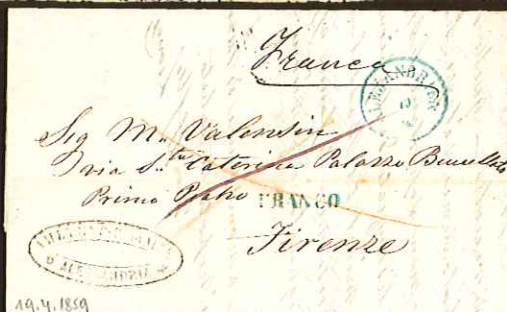 Franca
ALEXANDRIEN
Sig M. Valensin
via S.ta Caterina Palazzo
Primo
FRANCO
Firenze
D'ALESSANDRIA
19.4.1859